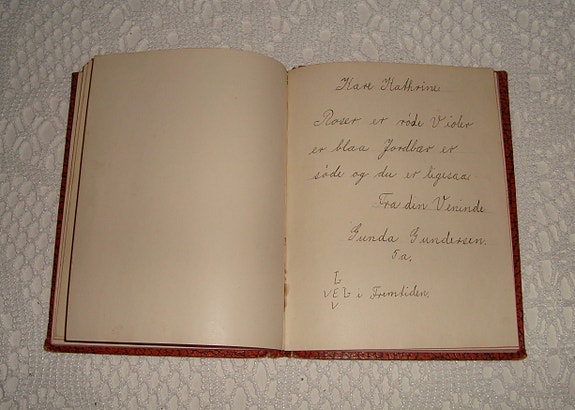 Kære Kathrine
Roser er røde Violer
er blaa Jordbær er
søde og du er ligesaa.
Fra din Veninde
Gunda Gundersen.
5a.
L
VEL i Fremtiden.
V